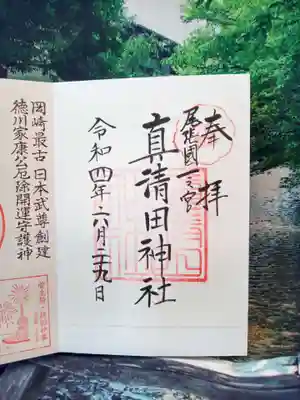 奉拝
尾張國一之宮
真清田神社
令和四年六月二九日
岡崎最古 日本武尊創建
徳川家康公厄除開運守護神